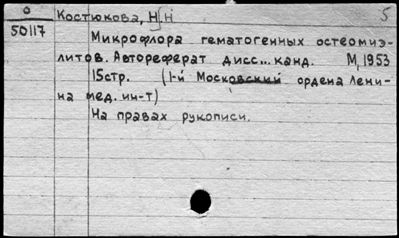 О Костюкова, Н.Н 5
50117
Микрофлора гематогенных остеомиэ-
литов. Автореферат дисс... канд. М, 1953
15стр. (1-й Московский ордена Лени-
на мед. ин-т)
На правах рукописи.